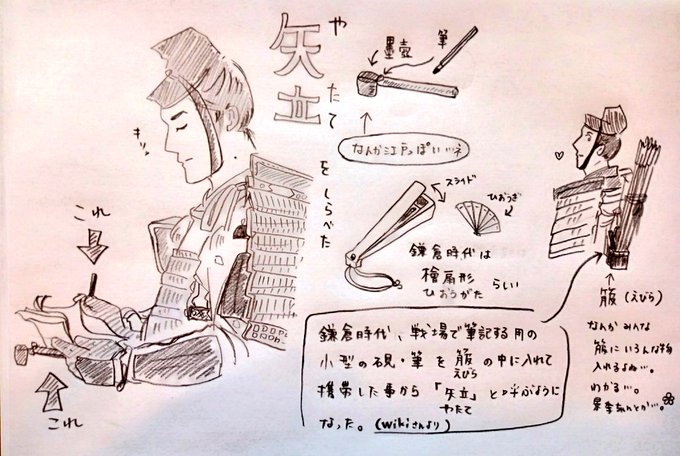 矢立
やたて
をしらべた
きりッ
これ
これ
墨壺
筆
なんか江戸っぽい
スライド
ひおうぎ
鎌倉時代は
檜扇形らしい
ひおうがた
箙(えびら)
なんかみんな
箙にいろんな物
入れるよね…。
わかる…。
景季ちゃんとか…。
鎌倉時代、戦場で筆記する用の
小型の硯・筆を箙の中に入れて
えびら
携帯した事から「矢立」と呼ぶように
やたて
なった。(wikiさんより)